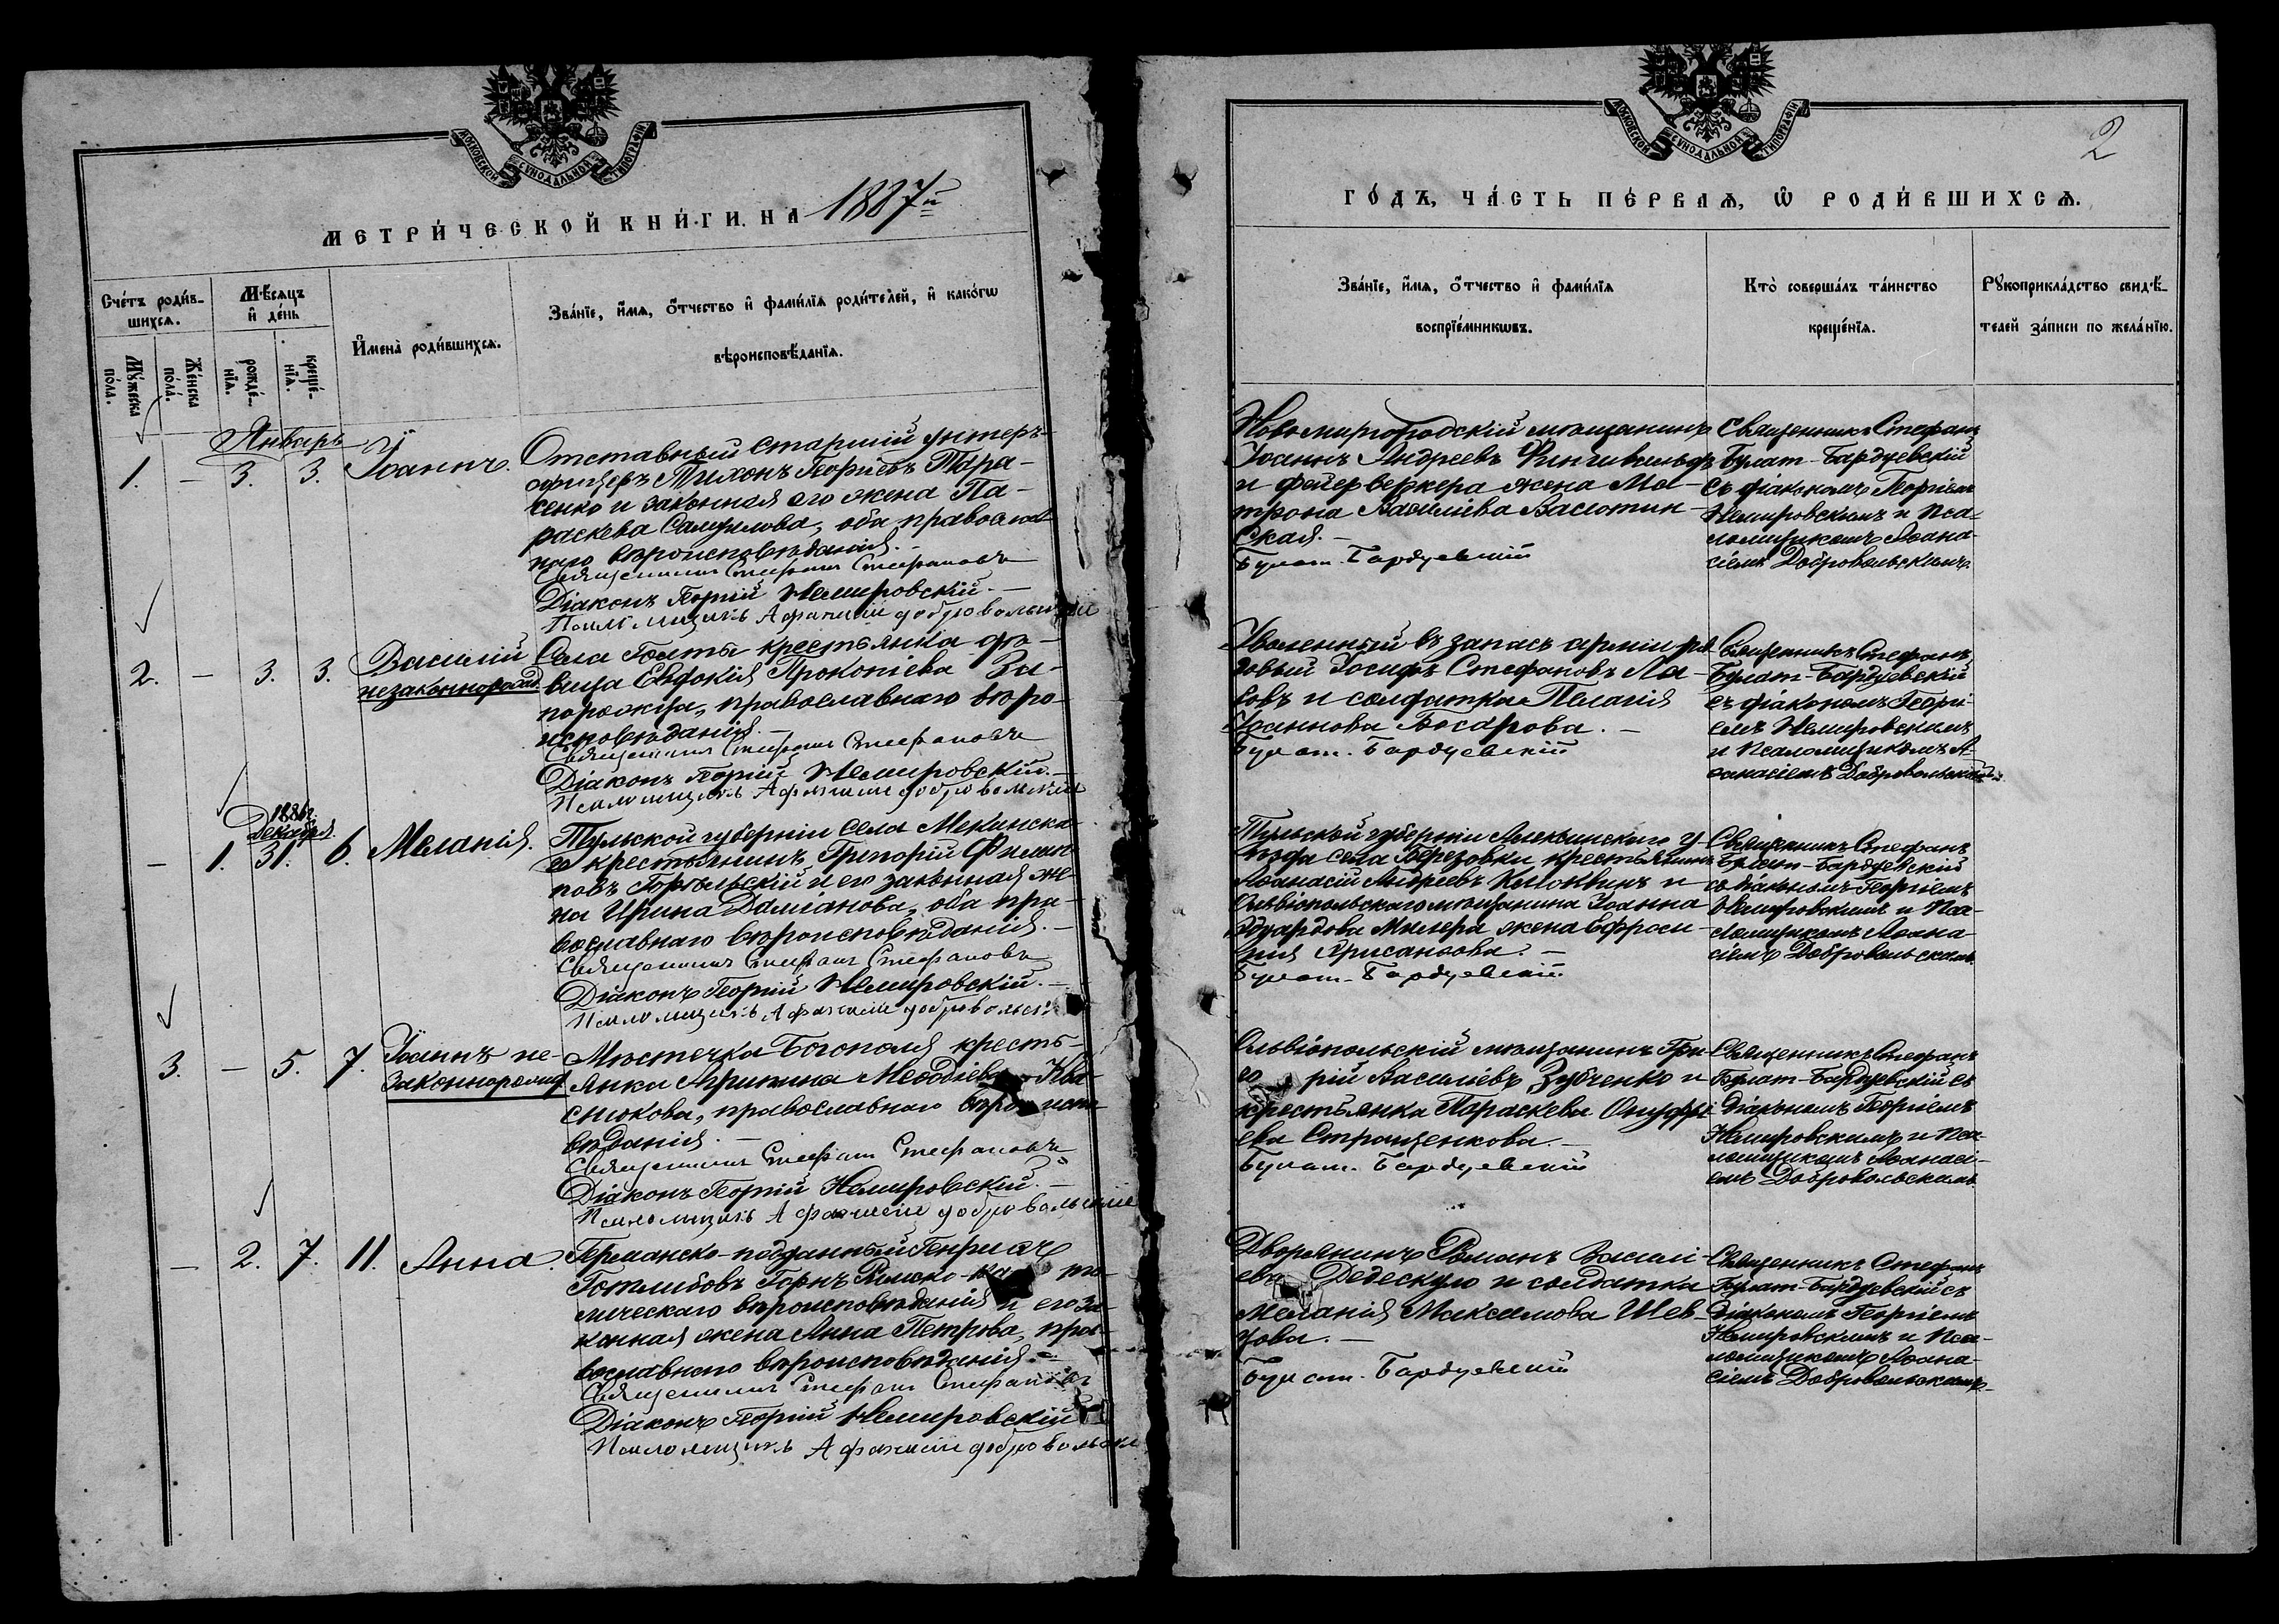 МОСКОВСКОЙ СѴНОДАЛЬНОЙ ТИПОГРАФІИ
МЕТРИ́ЧЕСКОЙ КНИ́ГИ НА 1887й
Сче́тъ роди́в-
шихсѧ.
Мꙋ́жеска
по́ла.
Же́нска
по́ла.
Мѣ́сѧцъ
и҆ де́нь
рожде́-
нїѧ.
креще́-
нїѧ.
И҆мена̀ роди́вшихсѧ.
Зва́нїе, и҆́мѧ, ѻ҆́тчество и҆ фами́лїѧ роди́телей, и҆ како́гѡ
вѣроисповѣ́данїѧ.
Январь
1. — 3. 3. Іоаннъ.
Отставный старшій унтеръ-
офицеръ Тихонъ Георгіевъ Тара-
сенко и законная его жена Па-
раскева Самуилова, оба православ
наго вѣроисповѣданія. —
Священникъ Стефанъ Стефановъ
Діаконъ Георгій Немировскій. —
Псаломщикъ Афанасій Добровольскій
2. — 3. 3. Василій
незаконнорожд.
Села Голты крестьянка дѣ-
вица Евдокія Прокопіева За-
порожца, православнаго вѣро-
исповѣданія. —
Священникъ Стефанъ Стефановъ
Діаконъ Георгій Немировскій. —
Псаломщикъ Афанасій Добровольскій
1886г.
Декабря.
— 1. 31. 6. Меланія.
Тульской губерніи села Мекинска-
го крестьянинъ Григорій Филип-
повъ Горбыльскій и его законная же-
на Ирина Даміанова, оба пра-
вославнаго вѣроисповѣданія. —
Священникъ Стефанъ Стефановъ
Діаконъ Георгій Немировскій. —
Псаломщикъ Афанасій Добровольскі
3. — 5. 7. Іоаннъ не-
законнорожд.
Мѣстечка Богополя кресть-
янка Агрипина Меѳодіева Ква-
снюкова, православнаго вѣроиспо
вѣданія. —
Священникъ Стефанъ Стефановъ
Діаконъ Георгій Немировскій. —
Псаломщикъ Афанасій Добровольскій
— 2. 7. 11. Анна.
Германско-подданный Генрихъ
Готлибовъ Горнъ Римско-ка то-
лическаго вѣроисповѣданія и его за-
конная жена Анна Петрова, пра-
вославнаго вѣроисповѣданія. —
Священникъ Стефанъ Стефановъ
Діаконъ Георгій Немировскій
Псаломщикъ Афанасій Добровольскі
МОСКОВСКОЙ СѴНОДАЛЬНОЙ ТИПОГРАФІИ
2
ГО́ДЪ, ЧА́СТЬ ПЕ́РВАѦ, Ѽ РОДИ́ВШИХСѦ.
Зва́нїе, и҆́мѧ, ѻ҆́тчество и҆ фами́лїѧ
воспрїе́мникѡвъ.
Кто̀ соверша́лъ та́инство
креще́нїѧ.
Рꙋкоприкла́дство свидѣ́-
телей за́писи по жела́нїю.
Новомиргородскій мѣщанинъ
Іоаннъ Андреевъ Фингивальдъ
и фейерверкера жена Ма-
трона Василіева Васютин-
ская. —
Булат-Бардуевскій
Священникъ Стефанъ
Булат-Бардуевскій
съ діакономъ Георгіемъ
Немировскимъ и пса-
ломщикомъ Аѳана-
сіемъ Добровольскимъ.
Уволенный въ запасъ арміи ря
довый Іосифъ Стефановъ Ла-
вовъ и солдатка Пелагія
Іоаннова Босарова. —
Булат-Бардуевскій
Священникъ Стефанъ
Булат-Бардуевскій
съ діакономъ Георгі-
емъ Немировскимъ
и псаломщикомъ А-
ѳанасіемъ Добровольскимъ.
Тульской губерніи Алексинскаго у-
ѣзда села Березовки крестьянинъ
Аѳанасій Андреевъ Килоквинъ и
Ольвіопольскаго мѣщанина Іоанна
Эдуардова Милера жена Ефроси-
нія Хрисанѳова. —
Булат-Бардуевскій
Священникъ Стефанъ
Булат-Бардуевскій
съ діакономъ Георгіемъ
Немировскимъ и пса-
ломщикомъ Аѳана-
сіемъ Добровольскимъ
Ольвіопольскій мѣщанинъ Гри-
го рій Василіевъ Зубченко и
крестьянка Параскева Онуфрі
ева Стращенкова. —
Булат-Бардуевскій
Священникъ Стефанъ
Булат-Бардуевскій съ
діакономъ Георгіемъ
Немировскимъ и пса-
ломщикомъ Аѳанасі-
емъ Добровольскимъ
Дворянинъ Романъ Васили
евъ Дедескуло и солдатка
Меланія Максимова Шев-
цова. —
Булат-Бардуевскій
Священникъ Стефанъ
Булат-Бардуевскій съ
діакономъ Георгіемъ
Немировскимъ и пса-
ломщикомъ Аѳана-
сіемъ Добровольскимъ